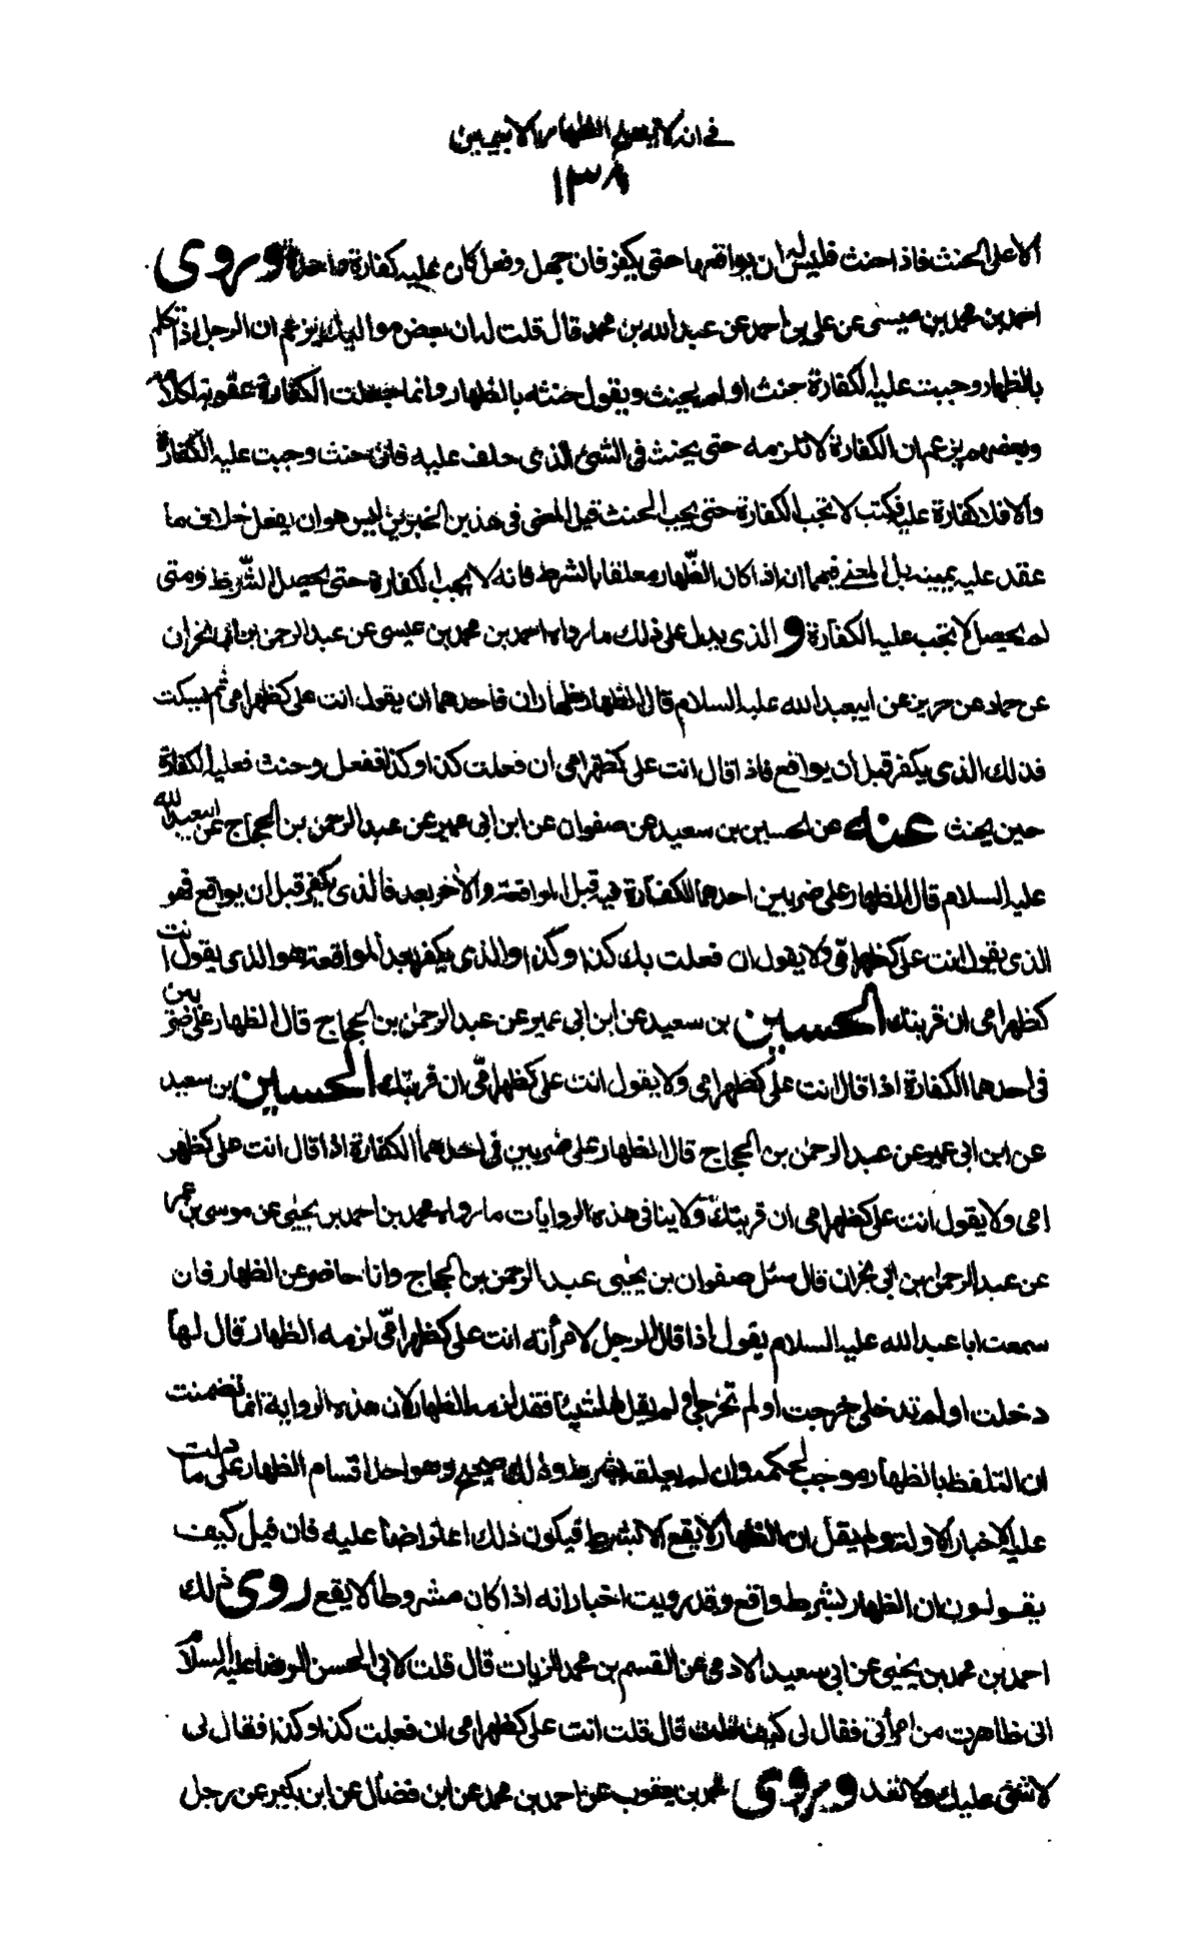 في انه لا يصح الظهار الا بيمين
١٣٨
الا على الحنث فاذا حنث فليس له ان يواقعها حتى يكفر فان جهل وفعل كان عليه كفارة واحدة وروى
احمد بن محمد بن عيسى عن على بن احمد عن عبد الله بن محمد قال قلت له ان بعض مواليك يزعم ان الرجل اذا تكلم
بالظهار وجبت عليه الكفارة حنث او لم يحنث ويقول حنثه بالظهار وانما جعلت الكفارة عقوبة لكلامه
وبعضهم يزعم ان الكفارة لا تلزمه حتى يحنث في الشئ الذى حلف عليه فان حنث وجبت عليه الكفارة
والا فلا كفارة عليه فكتب لا تجب الكفارة حتى يجب الحنث قيل المعنى في هذين الخبرين ليس هو ان يفعل خلاف ما
عقد عليه يمينه بل المعنى فيهما انه اذا كان الظّهار معلقا بالشرط فانه لا يجب الكفارة حتى يحصل الشّرط ومتى
لم يحصل لا تجب عليه الكفارة و الذى يدل على ذلك ما رواه احمد بن محمد بن عيسى عن عبد الرحمن بن ابى نجران
عن حماد عن حريز عن ابيعبد الله عليه السلام قال الظهار ظهاران فاحدهما ان يقول انت على كظهر امى ثم يسكت
فذلك الذى يكفر قبل ان يواقع فاذا قال انت على كظهر امى ان فعلت كذا وكذا ففعل وحنث فعليه الكفارة
حين يحنث عنه عن الحسين بن سعيد عن صفوان عن ابن ابى عمير عن عبد الرحمن بن الحجاج عن ابيعبد الله
عليه السلام قال الظهار على ضربين احدهما الكفارة فيه قبل المواقعة والاخر بعد فالذى يكفر قبل ان يواقع فهو
الذى يقول انت على كظهر امّى ولا يقول ان فعلت بك كذا وكذا والذى يكفر بعد المواقعة هو الذى يقول انت
كظهر امى ان قربتك الحسين بن سعيد عن ابن ابى عمير عن عبد الرحمن بن الحجاج قال الظهار على ضربين
في احدهما الكفارة اذا قال انت على كظهر امى ولا يقول انت على كظهر امّى ان قربتك الحسين بن سعيد
عن ابن ابى عمير عن عبد الرحمن بن الحجاج قال الظهار على ضربين في احدهما الكفارة اذا قال انت على كظهر
امى ولا يقول انت على كظهر امى ان قربتك ولا ينافى هذه الروايات ما رواه محمد بن احمد بن يحيى عن موسى بن عمر
عن عبد الرحمن بن ابى نجران قال سئل صفوان بن يحيى عبد الرحمن بن الحجاج وانا حاضر عن الظهار فان
سمعت ابا عبد الله عليه السلام يقول اذا قال الرجل لامرأته انت على كظهر امّى لزمه الظهار قال لها
دخلت او لم تدخلى خرجت او لم تخرجى او لم يقل لها شيئا فقد لزمه الظهار لان هذه الرواية انما تضمنت
ان التلفظ بالظهار موجب لحكمه وان لم يعلقه بشرط وذلك صحيح وهو احد اقسام الظهار على ما دلت
عليه الاخبار الاولة ولم يقل ان الظهار لا يقع الا بشرط فيكون ذلك اعتراضا عليه فان قيل كيف
يقولون ان الظهار بشرط واقع وقد رويت اخبار انه اذا كان مشروطا لا يقع روى ذلك
احمد بن محمد بن يحيى عن ابى سعيد الادمى عن القسم بن محمد الزيات قال قلت لابى الحسن الرضا عليه السلام
انى ظاهرت من امرأتى فقال لى كيف قلت قال قلت انت على كظهر امى ان فعلت كذا وكذا فقال لى
لا شئ عليك ولا تعد وروى محمد بن يعقوب عن احمد بن محمد عن ابن فضال عن ابن بكير عن رجل